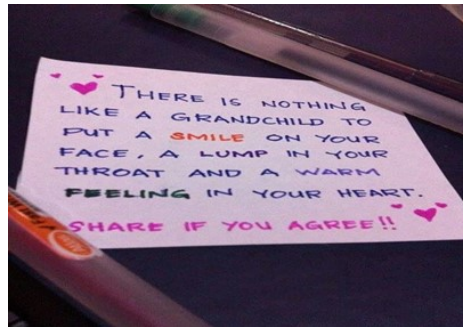 THERE IS NOTHING
LIKE A GRANDCHILD TO
PUT A SMILE ON YOUR
FACE, A LUMP IN YOUR
THROAT AND A WARM
FEELING IN YOUR HEART.
SHARE IF YOU AGREE!!